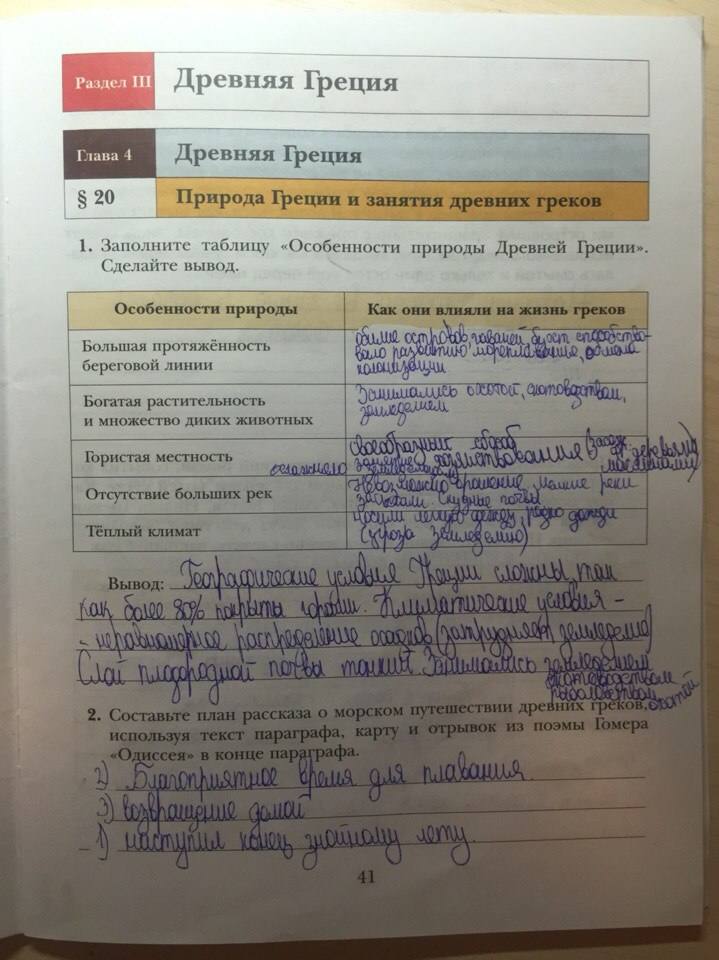 Раздел III Древняя Греция
Глава 4 Древняя Греция
§ 20 Природа Греции и занятия древних греков
1. Заполните таблицу «Особенности природы Древней Греции».
Сделайте вывод.
Особенности природы Как они влияли на жизнь греков
Большая протяжённость
береговой линии
обилие островов, гаваней, бухт способство-
вало развитию мореплавание, обмена
колонизации
Богатая растительность
и множество диких животных
Занимались охотой, скотоводством,
земледелием
Гористая местность
своеобразный способ
хозяйствования
деревьями
маслинами)
осложнено земледелие
Отсутствие больших рек
Невозможно орошение, мелкие реки
Скудные почвы
Тёплый климат
носили легкую одежду, редко дожди
(угроза земледелию)
Вывод: Географические условия Греции сложны, так
как более 80% покрыты горами. Климатические условия -
- неравномерное распределение осадков (затрудняет земледелие)
Слой плодородной почвы тонкий. Занимались земледелием
скотоводством
рыболовством охотой
2. Составьте план рассказа о морском путешествии древних греков,
используя текст параграфа, карту и отрывок из поэмы Гомера
«Одиссея» в конце параграфа.
2) Благоприятное время для плавания.
3) возвращение домой
1) наступил конец знойному лету.
41